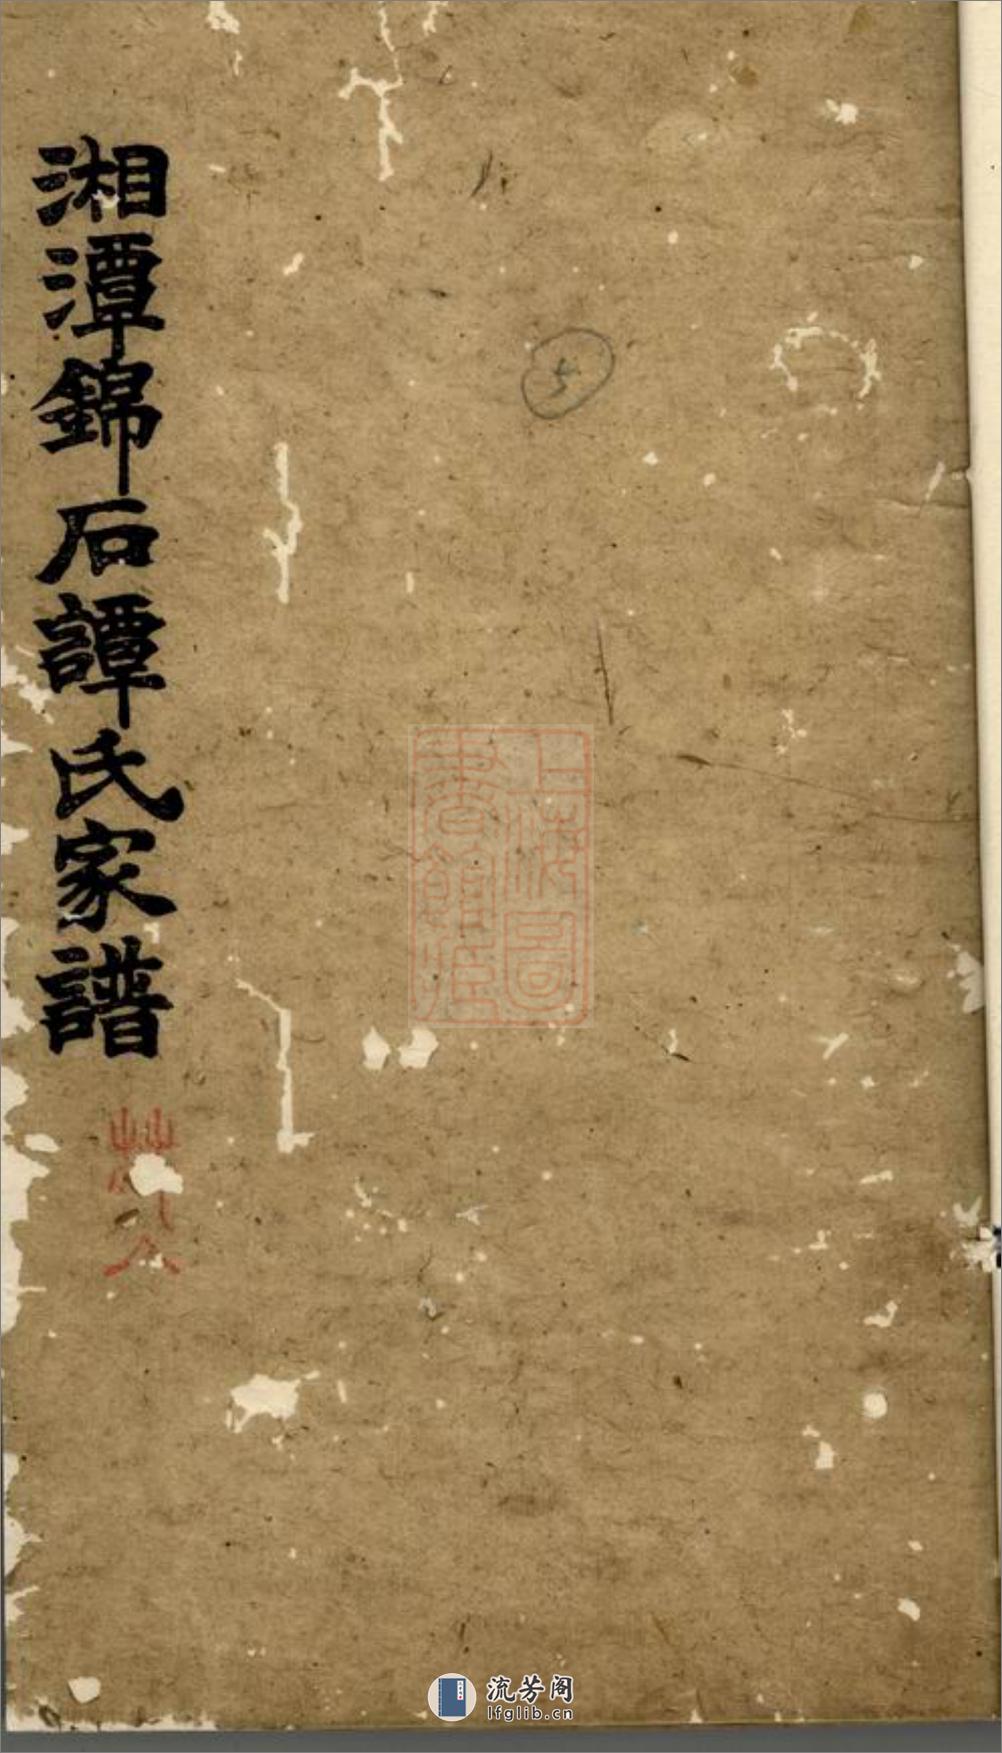 湘潭錦石譚氏家譜
5
上海圖
書館藏
流芳阁
lfglib.cn